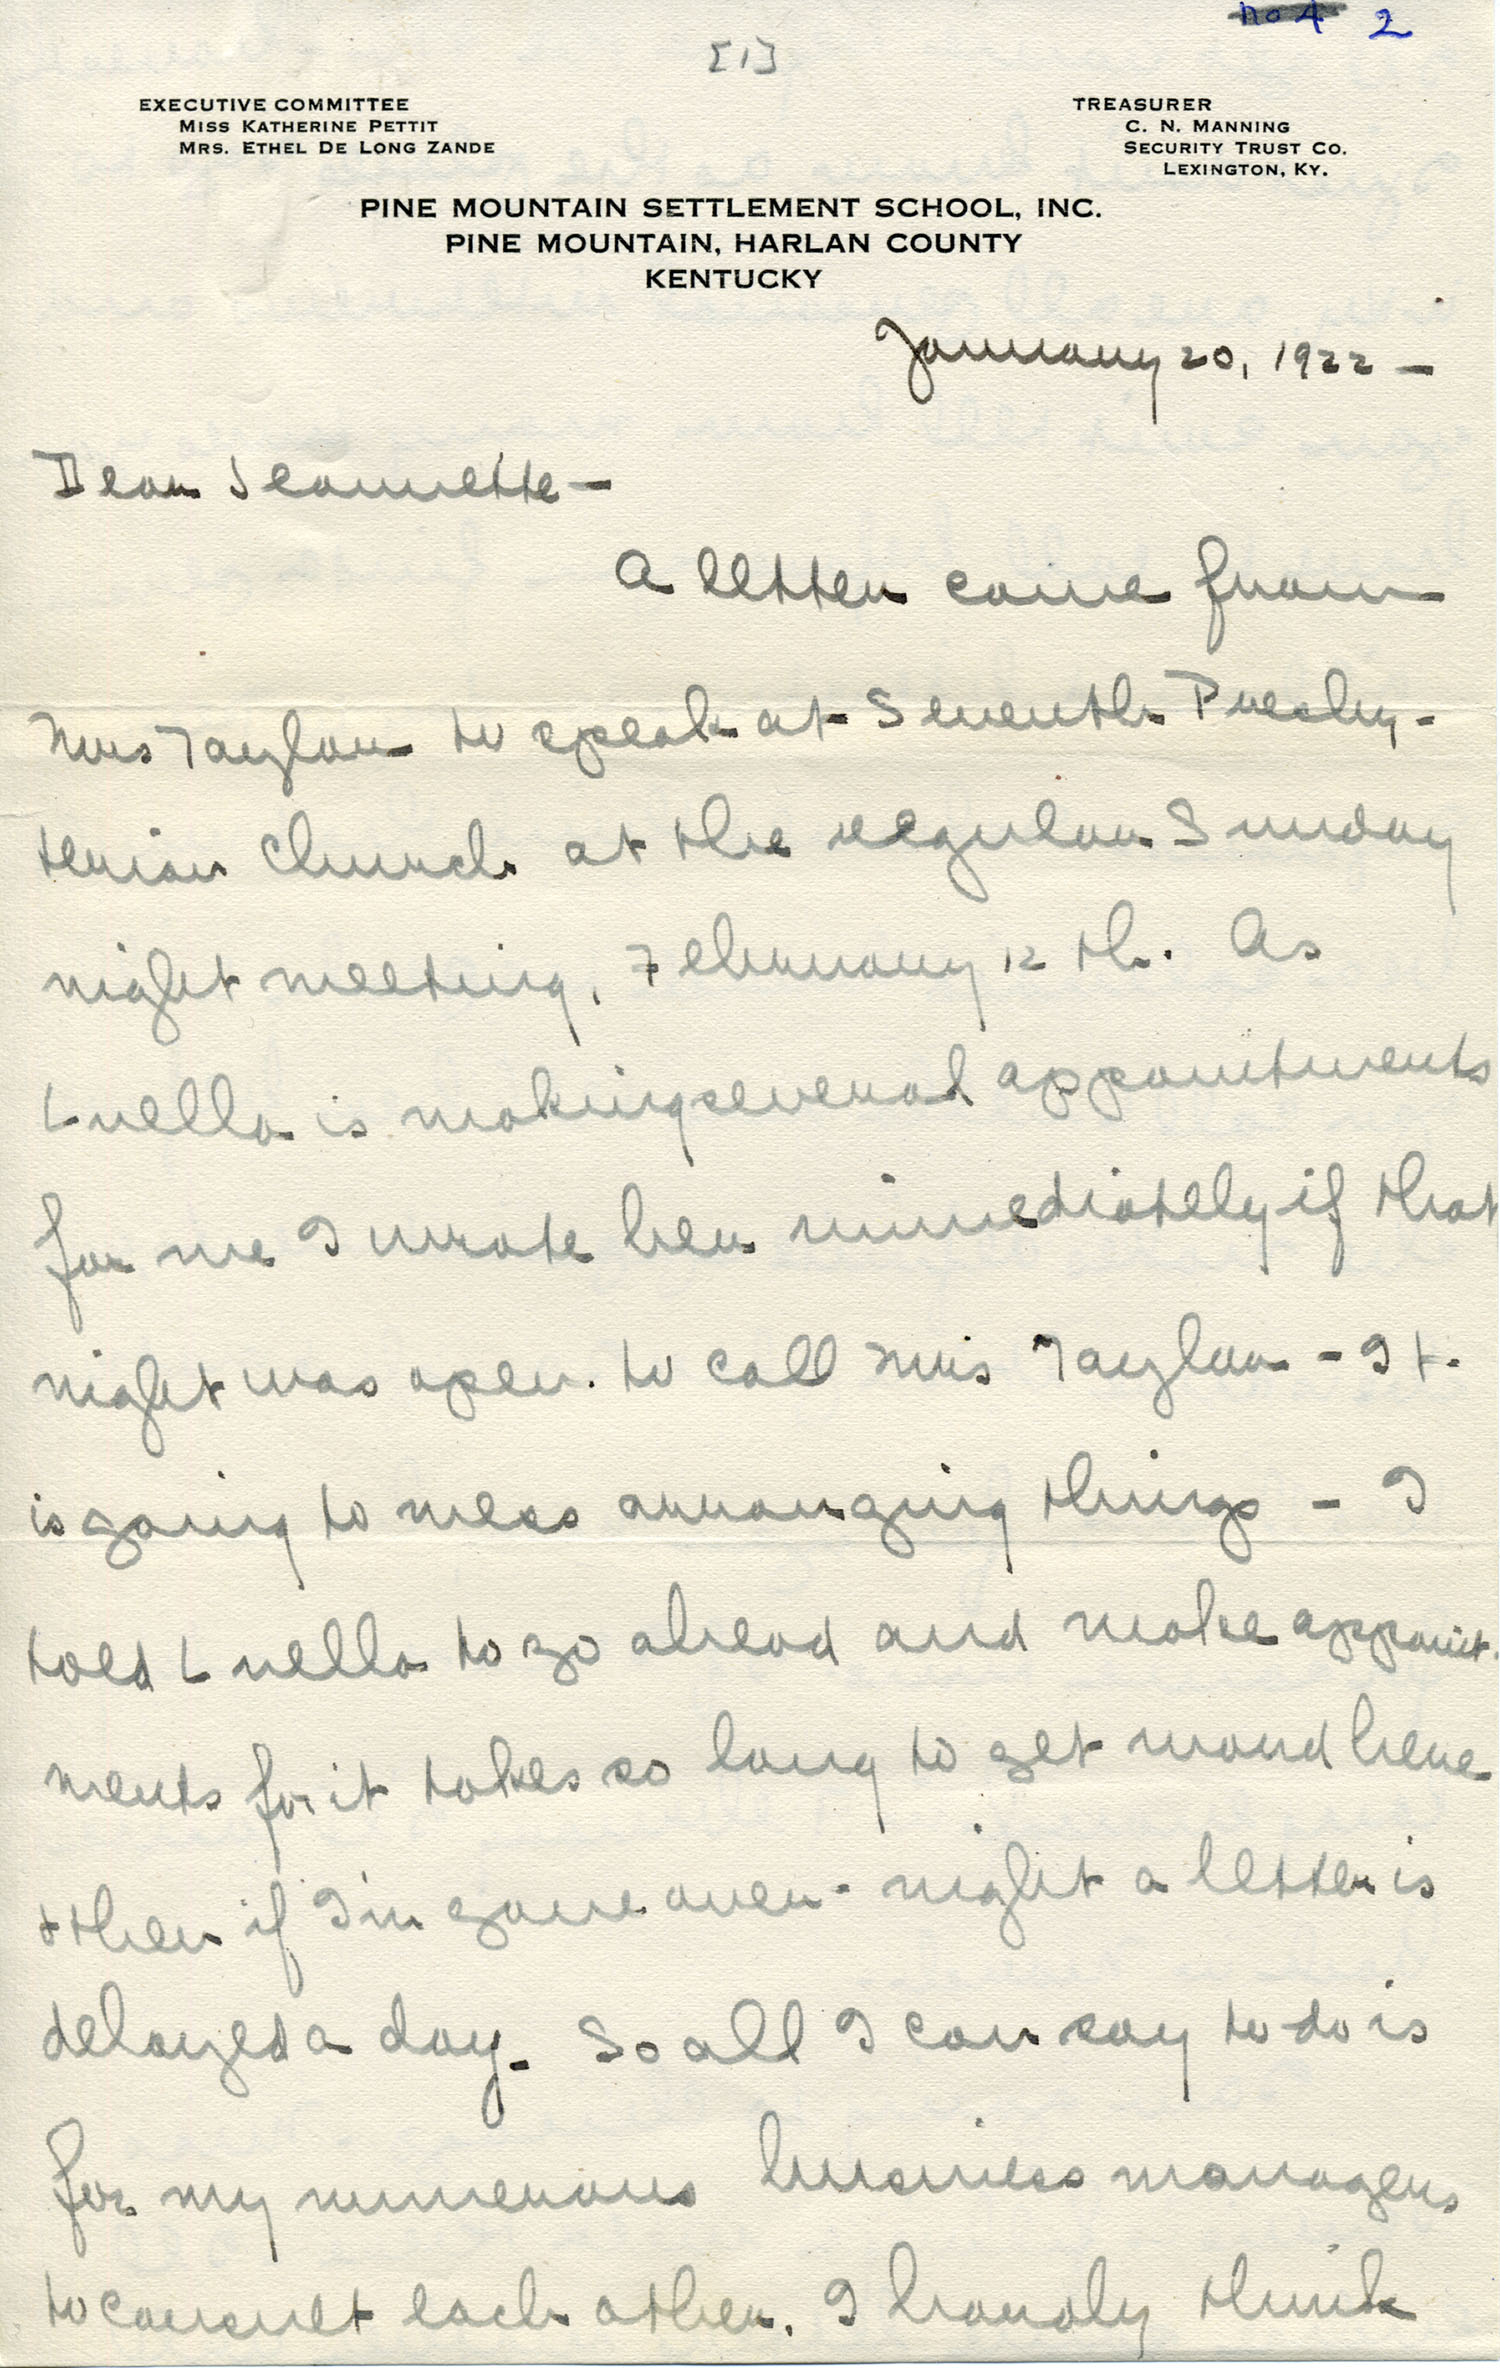 no 4 2
[1]
EXECUTIVE COMMITTEE
MISS KATHERINE PETTIT
MRS. ETHEL DE LONG ZANDE
TREASURER
C. N. MANNING
SECURITY TRUST CO.
LEXINGTON, KY.
PINE MOUNTAIN SETTLEMENT SCHOOL, INC.
PINE MOUNTAIN, HARLAN COUNTY
KENTUCKY
January 20, 1922 –
Dear Jeannette –
A letter came from
Mrs Taylor to speak at Seventh Presby-
terian Church at the regular Sunday
night meeting, February 12 th. As
Luella is making several appointments
for me I wrote her immediately if that
night was open to call Mrs Taylor – It
is going to mess arranging things – I
told Luella to go ahead and make appoint-
ments for it takes so long to get word here
& then if I'm gone over-night a letter is
delayed a day – So all I can say to do is
for my numerous business managers
to consult each other. I hardly think